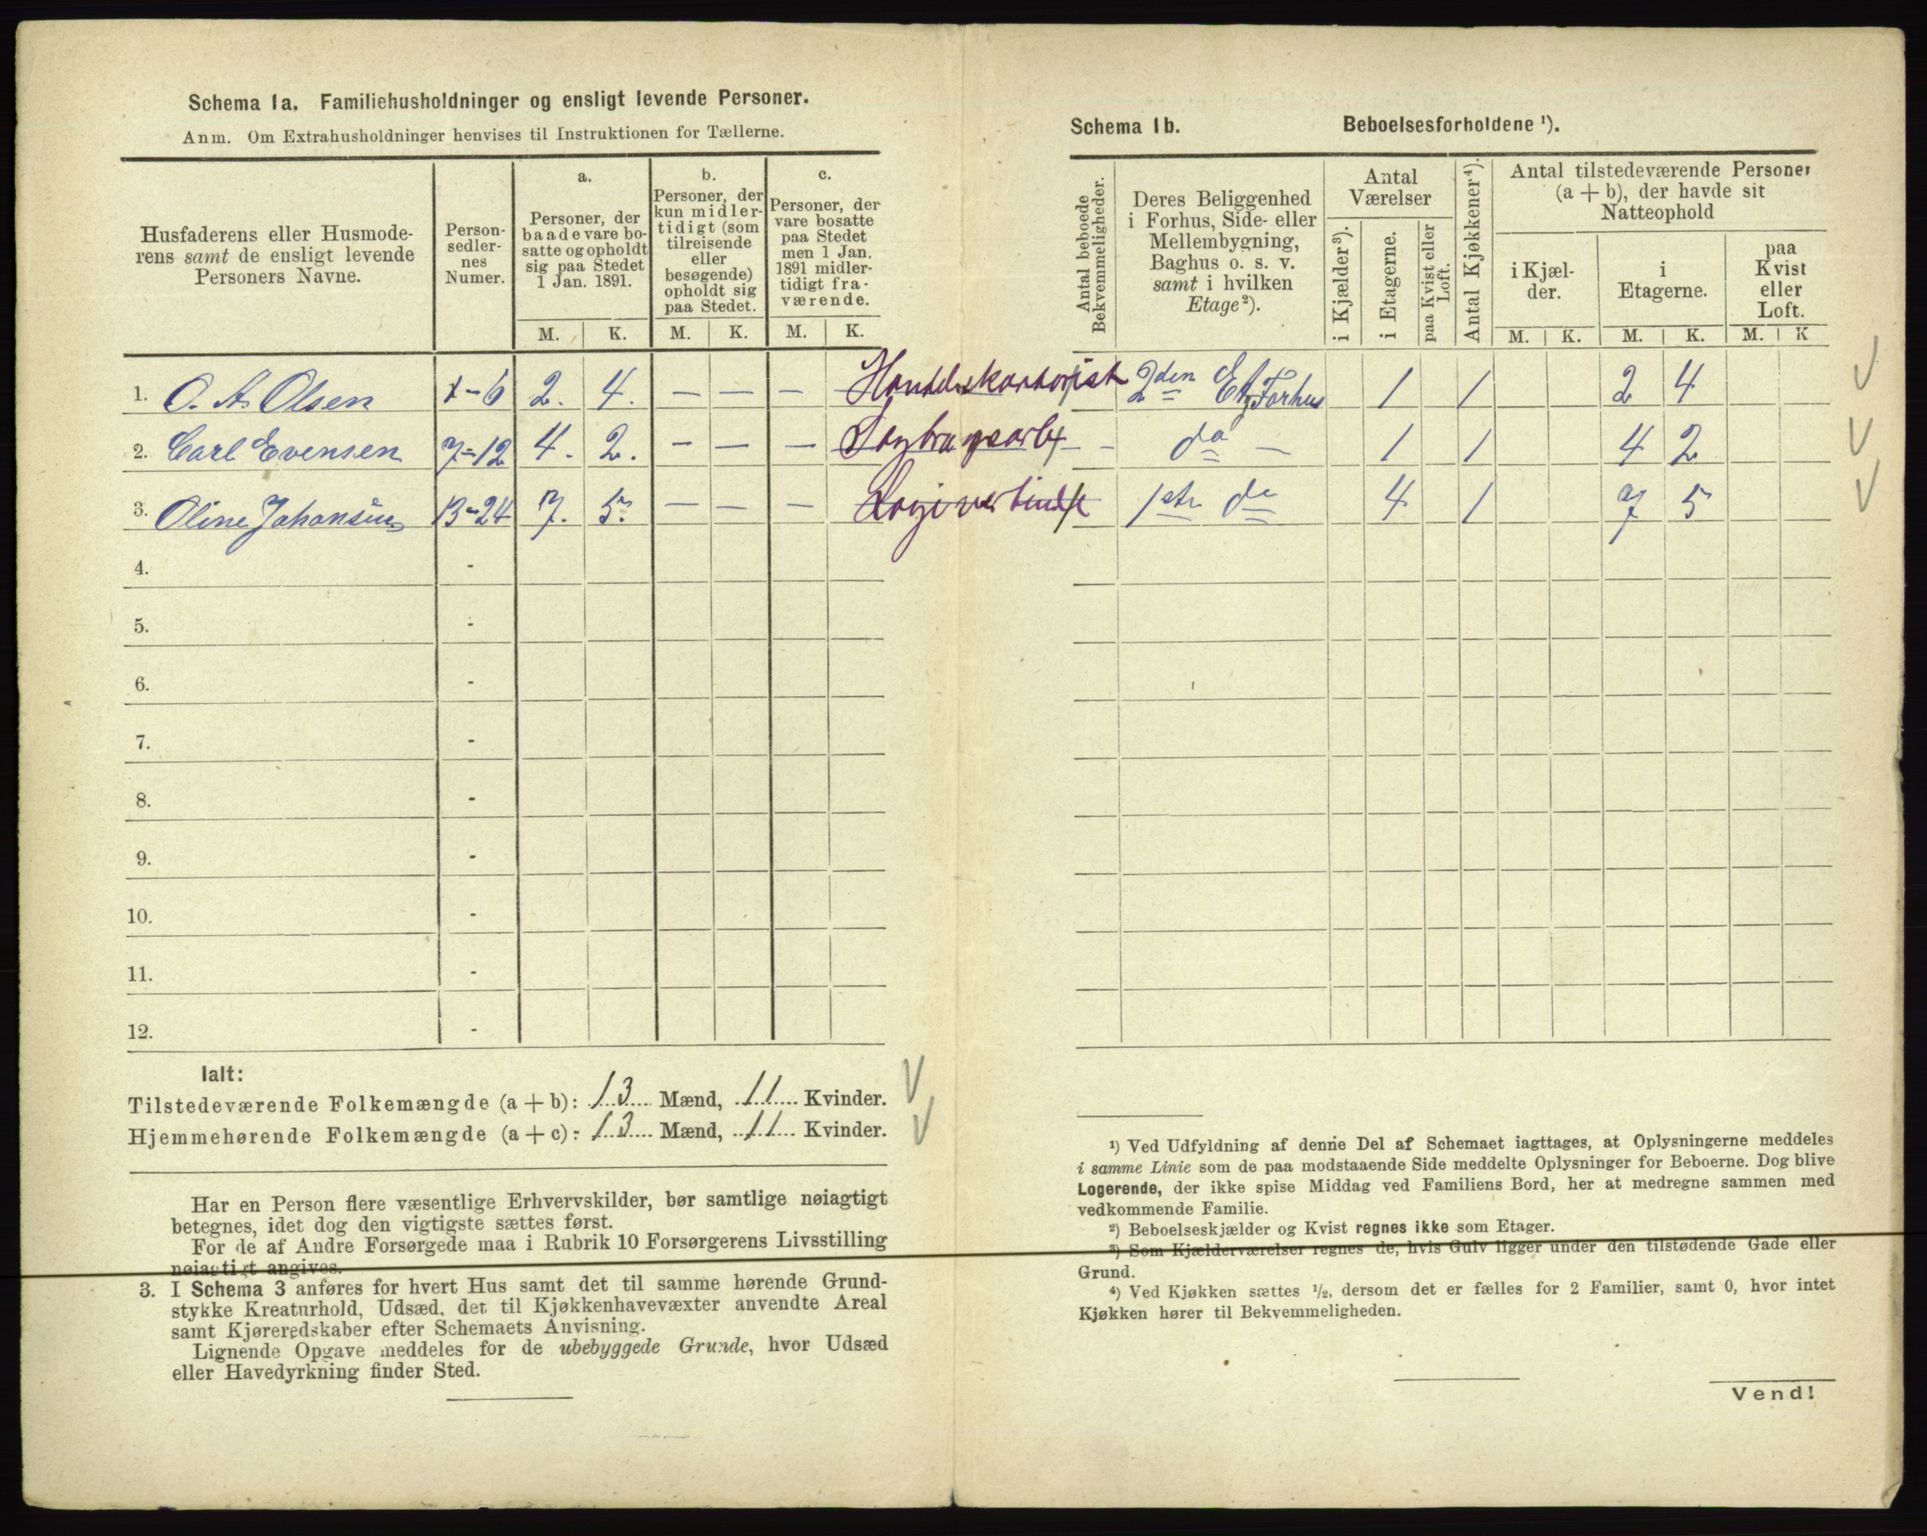 Schema 1a. Familiehusholdninger og ensligt levende Personer.
Anm. Om Extrahusholdninger henvises til Instruktionen for Tællerne.
Husfaderens eller Husmode-
rens samt de ensligt levende
Personers Navne.
Person-
sedler-
nes
Numer.
a.
Personer, der
baade vare bo-
satte og opholdt
sig paa Stedet
1 Jan. 1891.
M. K.
b.
Personer, der
kun midler-
tidigt (som
tilreisende
eller
besøgende)
opholdt sig
paa Stedet.
M. K.
c.
Personer, der
vare bosatte
paa Stedet
men 1 Jan.
1891 midler-
tidigt fra-
værende.
M. K.
1. O. A. Olsen 1-6 2. 4. — — — Handelskontorist
2. Carl Evensen 7-12 4. 2. — — —
3. Oline Johansen 13-24 7. 5. — — —
4. -
5. -
6. -
7. -
8. -
9. -
10. -
11. -
12. -
Ialt:
Tilstedeværende Folkemængde (a + b): 13 Mænd, 11 Kvinder.
Hjemmehørende Folkemængde (a + c): 13 Mænd, 11 Kvinder.
Har en Person flere væsentlige Erhvervskilder, bør samtlige nøiagtigt
betegnes, idet dog den vigtigste sættes først.
For de af Andre Forsørgede maa i Rubrik 10 Forsørgerens Livsstilling
nøiagtigt angives.
3. I Schema 3 anføres for hvert Hus samt det til samme hørende Grund-
stykke Kreaturhold, Udsæd, det til Kjøkkenhavevæxter anvendte Areal
samt Kjøreredskaber efter Schemaets Anvisning.
Lignende Opgave meddeles for de ubebyggede Grunde, hvor Udsæd
eller Havedyrkning finder Sted.
Schema 1b. Beboelsesforholdene ¹).
Antal beboede
Bekvemmeligheder.
Deres Beliggenhed
i Forhus, Side- eller
Mellembygning,
Baghus o. s. v.
samt i hvilken
Etage²).
Antal
Værelser
i Kjælder³).
i Etagerne.
paa Kvist eller
Loft.
Antal Kjøkkener⁴).
Antal tilstedeværende Personer
(a + b), der havde sit
Natteophold
i Kjæl-
der.
i
Etagerne.
paa
Kvist
eller
Loft.
M. K. M. K. M. K
2den Etg Forhus 1 1 2 4
— do — 1 1 4 2
1ste do 4 1 7 5
¹) Ved Udfyldning af denne Del af Schemaet iagttages, at Oplysningerne meddeles
i samme Linie som de paa modstaaende Side meddelte Oplysninger for Beboerne. Dog blive
Logerende, der ikke spise Middag ved Familiens Bord, her at medregne sammen med
vedkommende Familie.
²) Beboelseskjælder og Kvist regnes ikke som Etager.
³) Som Kjælderværelser regnes de, hvis Gulv ligger under den tilstødende Gade eller
Grund.
⁴) Ved Kjøkken sættes ½, dersom det er fælles for 2 Familier, samt 0, hvor intet
Kjøkken hører til Bekvemmeligheden.
Vend!